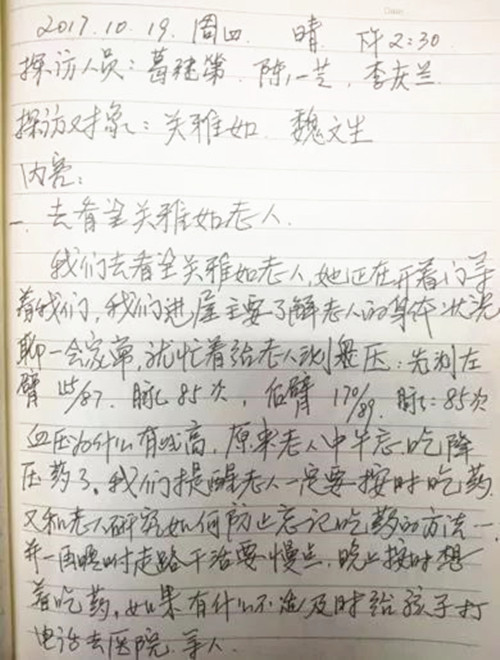 2017.10.19.周四 晴 下午2:30
探访人员：葛继第.陈一芝.李庆兰
探访对象：关雅如 魏文生
内容：
一.去看望关雅如老人.
我们去看望关雅如老人,她正在开着门等
着我们,我们进屋主要了解老人的身体状况
聊一会家常,就忙着给老人测量血压:先测左
臂 /87.脉: 85次,右臂 170/89.脉: 85次
血压为什么有些高,原来老人中午忘吃降
压药了。我们提醒老人一定要按时吃药
又和老人研究如何防止忘记吃药的方法一
并一再嘱咐走路干活要慢点.晚上按时想
着吃药,如果有什么不适及时给孩子打
电话去医院.等人.